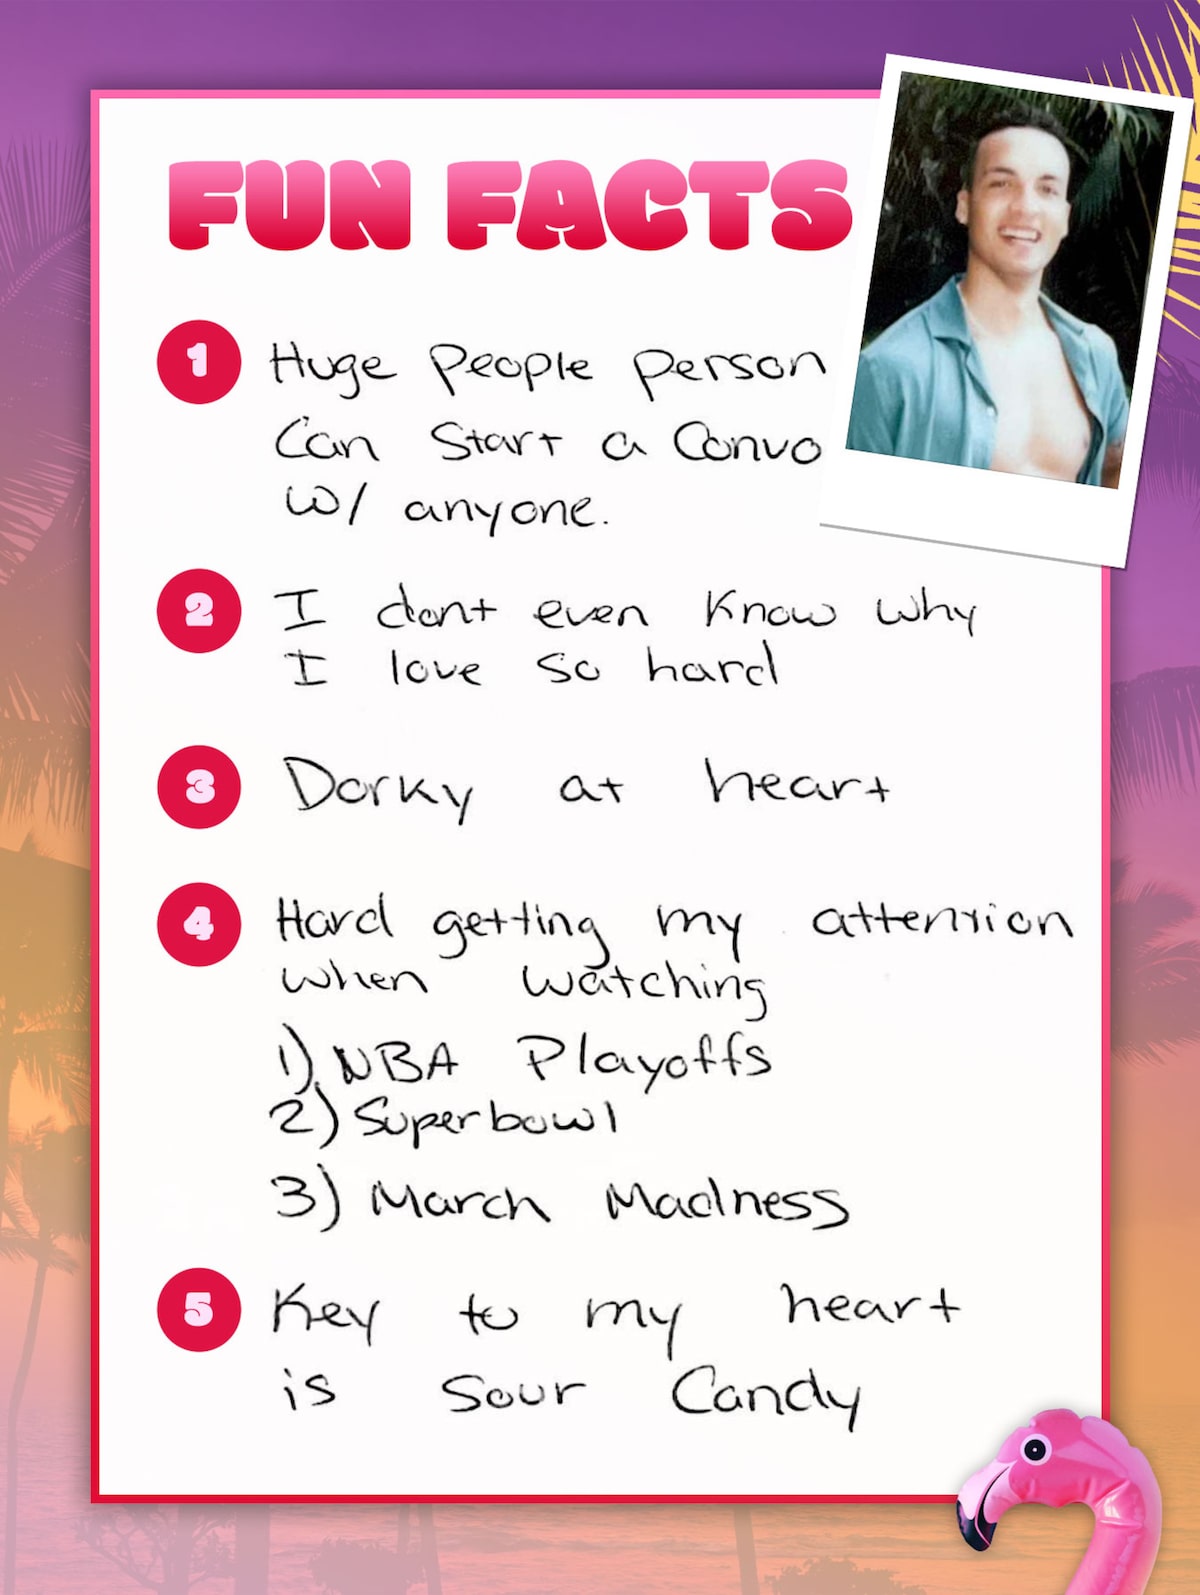 FUN FACTS
1 Huge People person
Can Start a Convo
w/ anyone.
2 I dont even know why
I love so hard
3 Dorky at heart
4 Hard getting my attention
when watching
1) NBA Playoffs
2) Superbowl
3) March Madness
5 Key to my heart
is Sour Candy